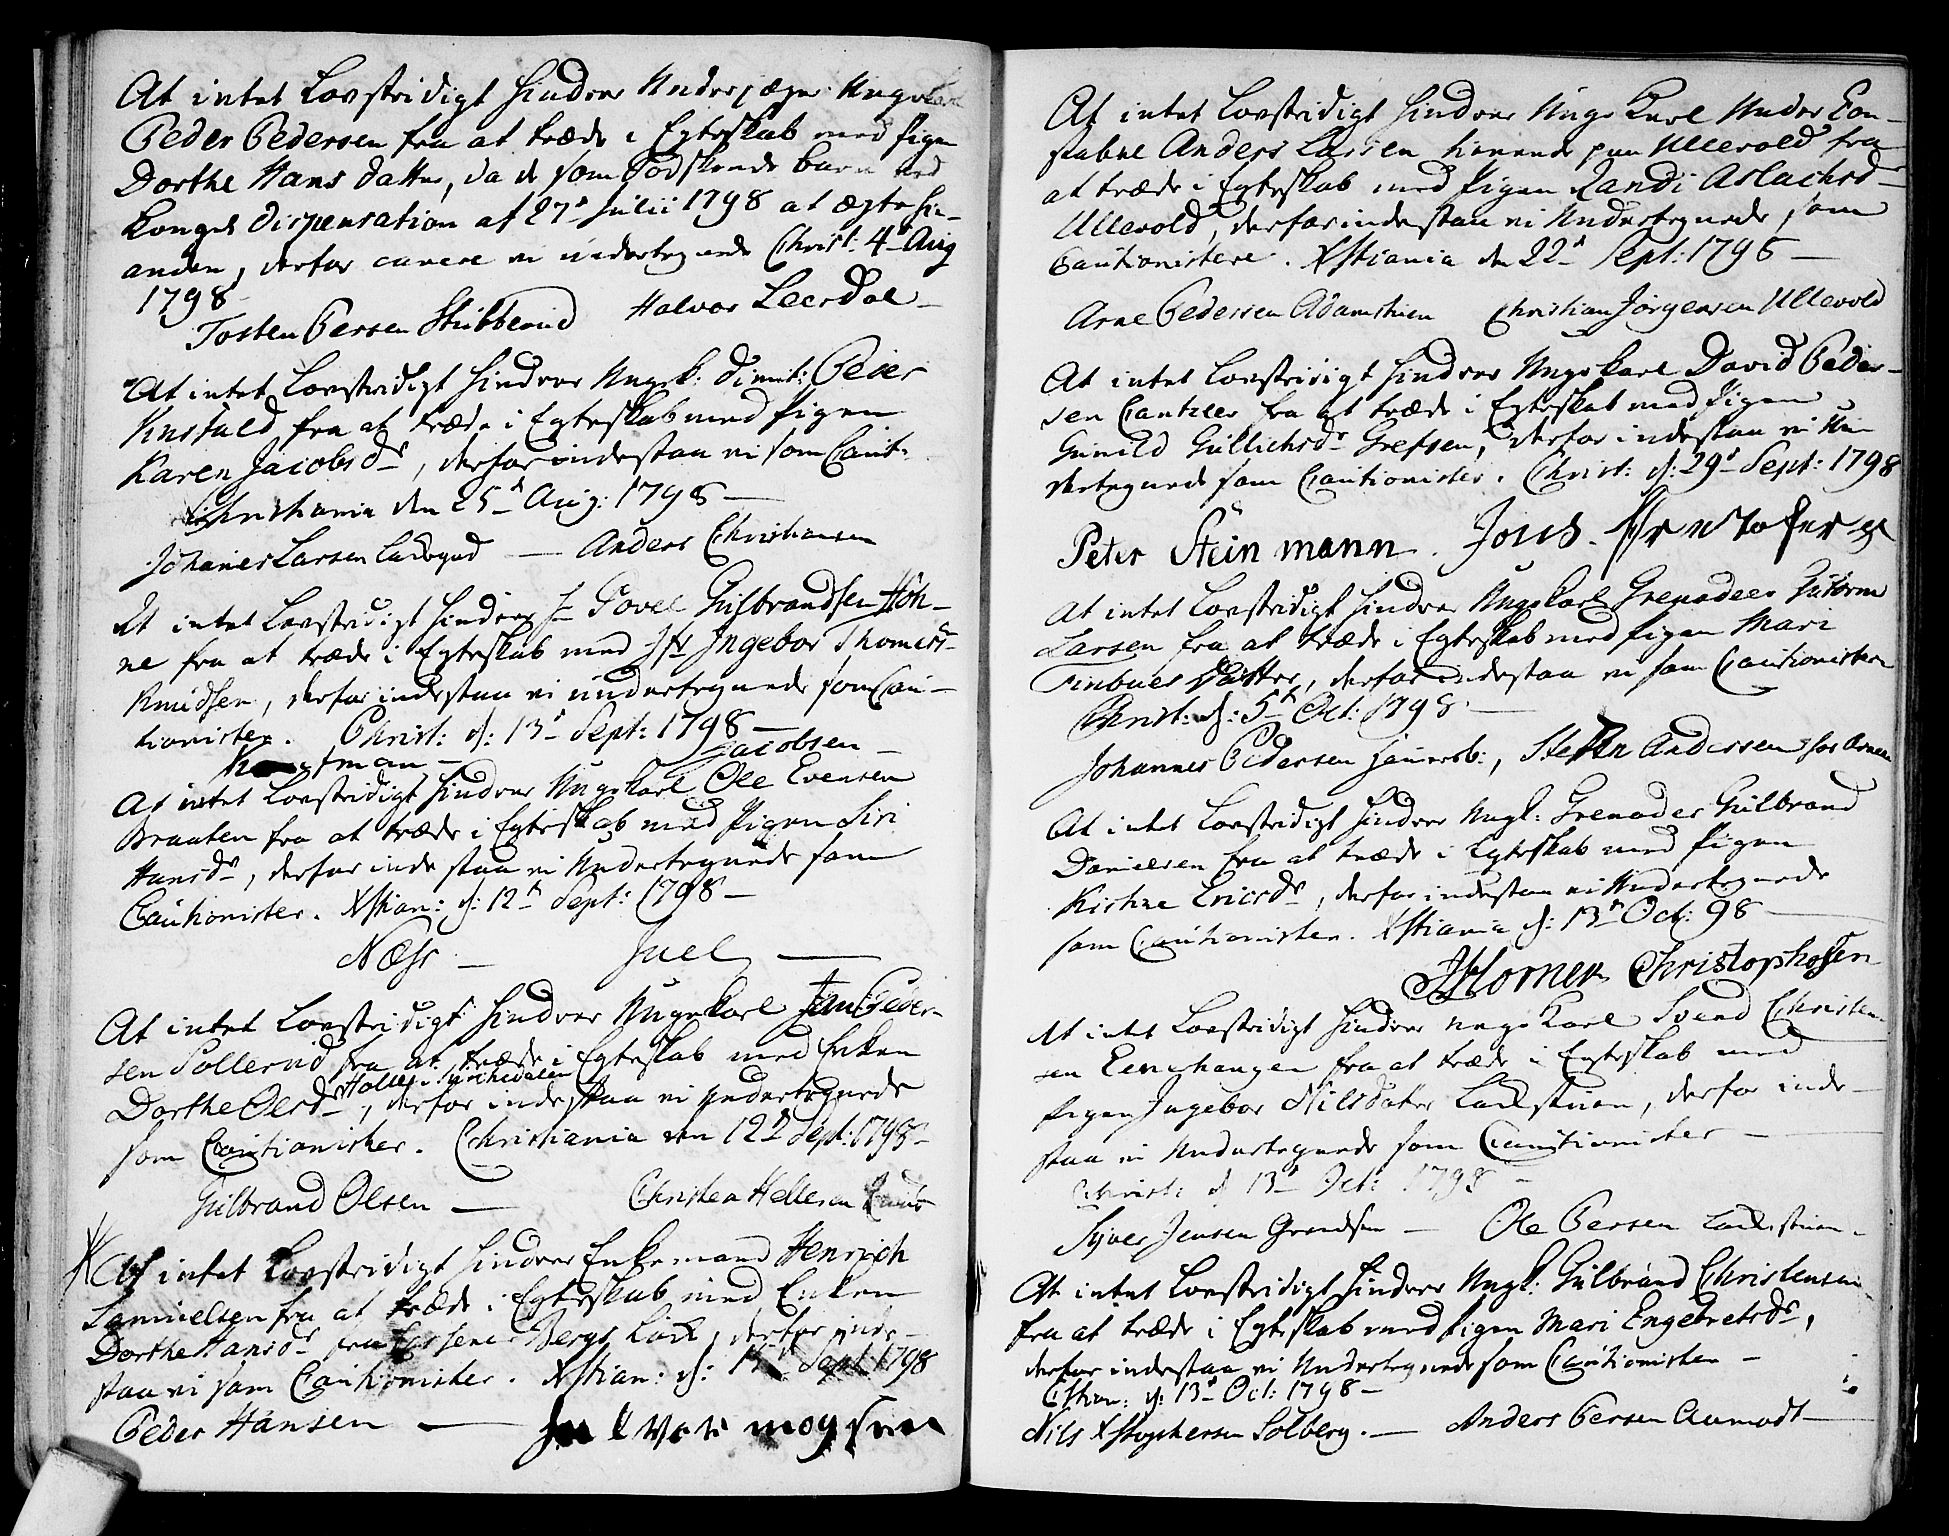 At intet Lovstridigt hindrer Underjæger Ungekarl
Peder Pedersen fra at træde i Egteskab med Pigen
Dorthe Hans datter, da de som Sødskende barn ved
Konges Dispensation af 27de Julii 1798 at ægte hin-
anden, derfor cavere vi undertegnede Christ: 4de Aug
1798
Tosten Persen Stubberud Halvor Leerdal
At intet Lovstridigt hindrer Ungek: dimit: Peder
Knifald fra at træde i Egteskab med Pigen
Karen Jacobsdr, derfor indestaa vi som Caut:
Christiania den 25de Aug: 1798
Johannes Larsen Ladegrd — Anders Christiansen
At intet Lovstridigt hindrer Povel Gulbrandsen Høh-
ne fra at træde i Egteskab med Jfr Ingebor Thomest-
Knudsen, derfor indestaa vi undertegnede som Cau-
tionister. Christ: d: 13de Sept: 1798 —
Jacobsen —
At intet Lovstridigt hindrer Ungekarl Ole Evensen
Braaten fra at træde i Egteskab med Pigen Siri
Hansdr, derfor inde staa vi Undertegnede som
Cautionister. Xstian: d: 12te Sept: 1798 —
Næss — Juel —
At intet Lovstridigt hindrer Ungekarl Jan Peder-
sen Sollerud fra at træde i Egteskab med Enken
Holter i Sørchedalen
Dorthe Olsdr, derfor indestaa vi undertegnede
som Cautionister. Christiania den 12te Sept: 1798 —
Gulbrand Olsen — Christen Hellesen
At intet Lovstridigt hindrer Enkemand Henrich
Samuelsen fra at træde i Egteskab med Enken
Dorthe Hansdr fra Bergs Løk, derfor inde-
staa vi som Cautionister. Xstian: d: Sept 1798
Peder Hansen — Halvor mogsen
At intet Lovstridigt hindrer Unge Karl Under Con-
stabel Anders Larsen tienende paa Ullevold fra
at træde i Egteskab med Pigen Randi Aslachsd-
Ullevold, derfor indestaa vi Undertegnede som
Cautionistere. Xstiania den 22de Sept: 1798 —
Arne Pedersen Adamstuen Christian Jørgensen Ullevold
At intet Lovstridigt hindrer Ungekarl David Peder-
sen Cantzler fra at træde i Egteskab med Pigen
Gunild Gullichsdr Grefsen, derfor indestaa vi Un-
dertegnede som Cautionister. Christ: d: 29de Sept: 1798
Peter Steinmann. Jons.
At intet Lovstridigt hindrer Ungekarl Grenadeer Guttorm
Larsen fra at træde i Egteskab med Pigen Mari
Finbues datter, derfor indestaa vi som Cautionister
Christ: d: 5te Oct: 1798 —
Johannes Pedersen , Steffen Andersen
At intet Lovstridigt hindrer Ungk: Grenader Gulbrand
Danielsen fra at træde i Egteskab med Pigen
Kistine Ericsdr, derfor indestaa vi Undertegnede
som Cautionister. Xstiania d: 13de Oct: 98 —
JHorner Christophersen
At intet Lovstridigt hindrer unge Karl Svend Christen-
sen Eenehaugen fra at træde i Egteskab med
Pigen Ingebor Nilsdater Løkkestuen, derfor inde-
staa vi Undertegnede som Cautionister —
Christ: d 13de Oct: 1798 —
Syver Jensen Grændsen — Ole Persen Løkkestuen.
At intet Lovstridigt hindrer Ungk: Gulbrand Christensen
fra at træde i Egteskab med Pigen Mari Engebretsdr,
derfor indestaa vi Undertegnede som Cautionister —
Cstian: d: 13de Oct: 1798 —
Nils Xstophersen Solberg. — Anders Persen Aamodt —